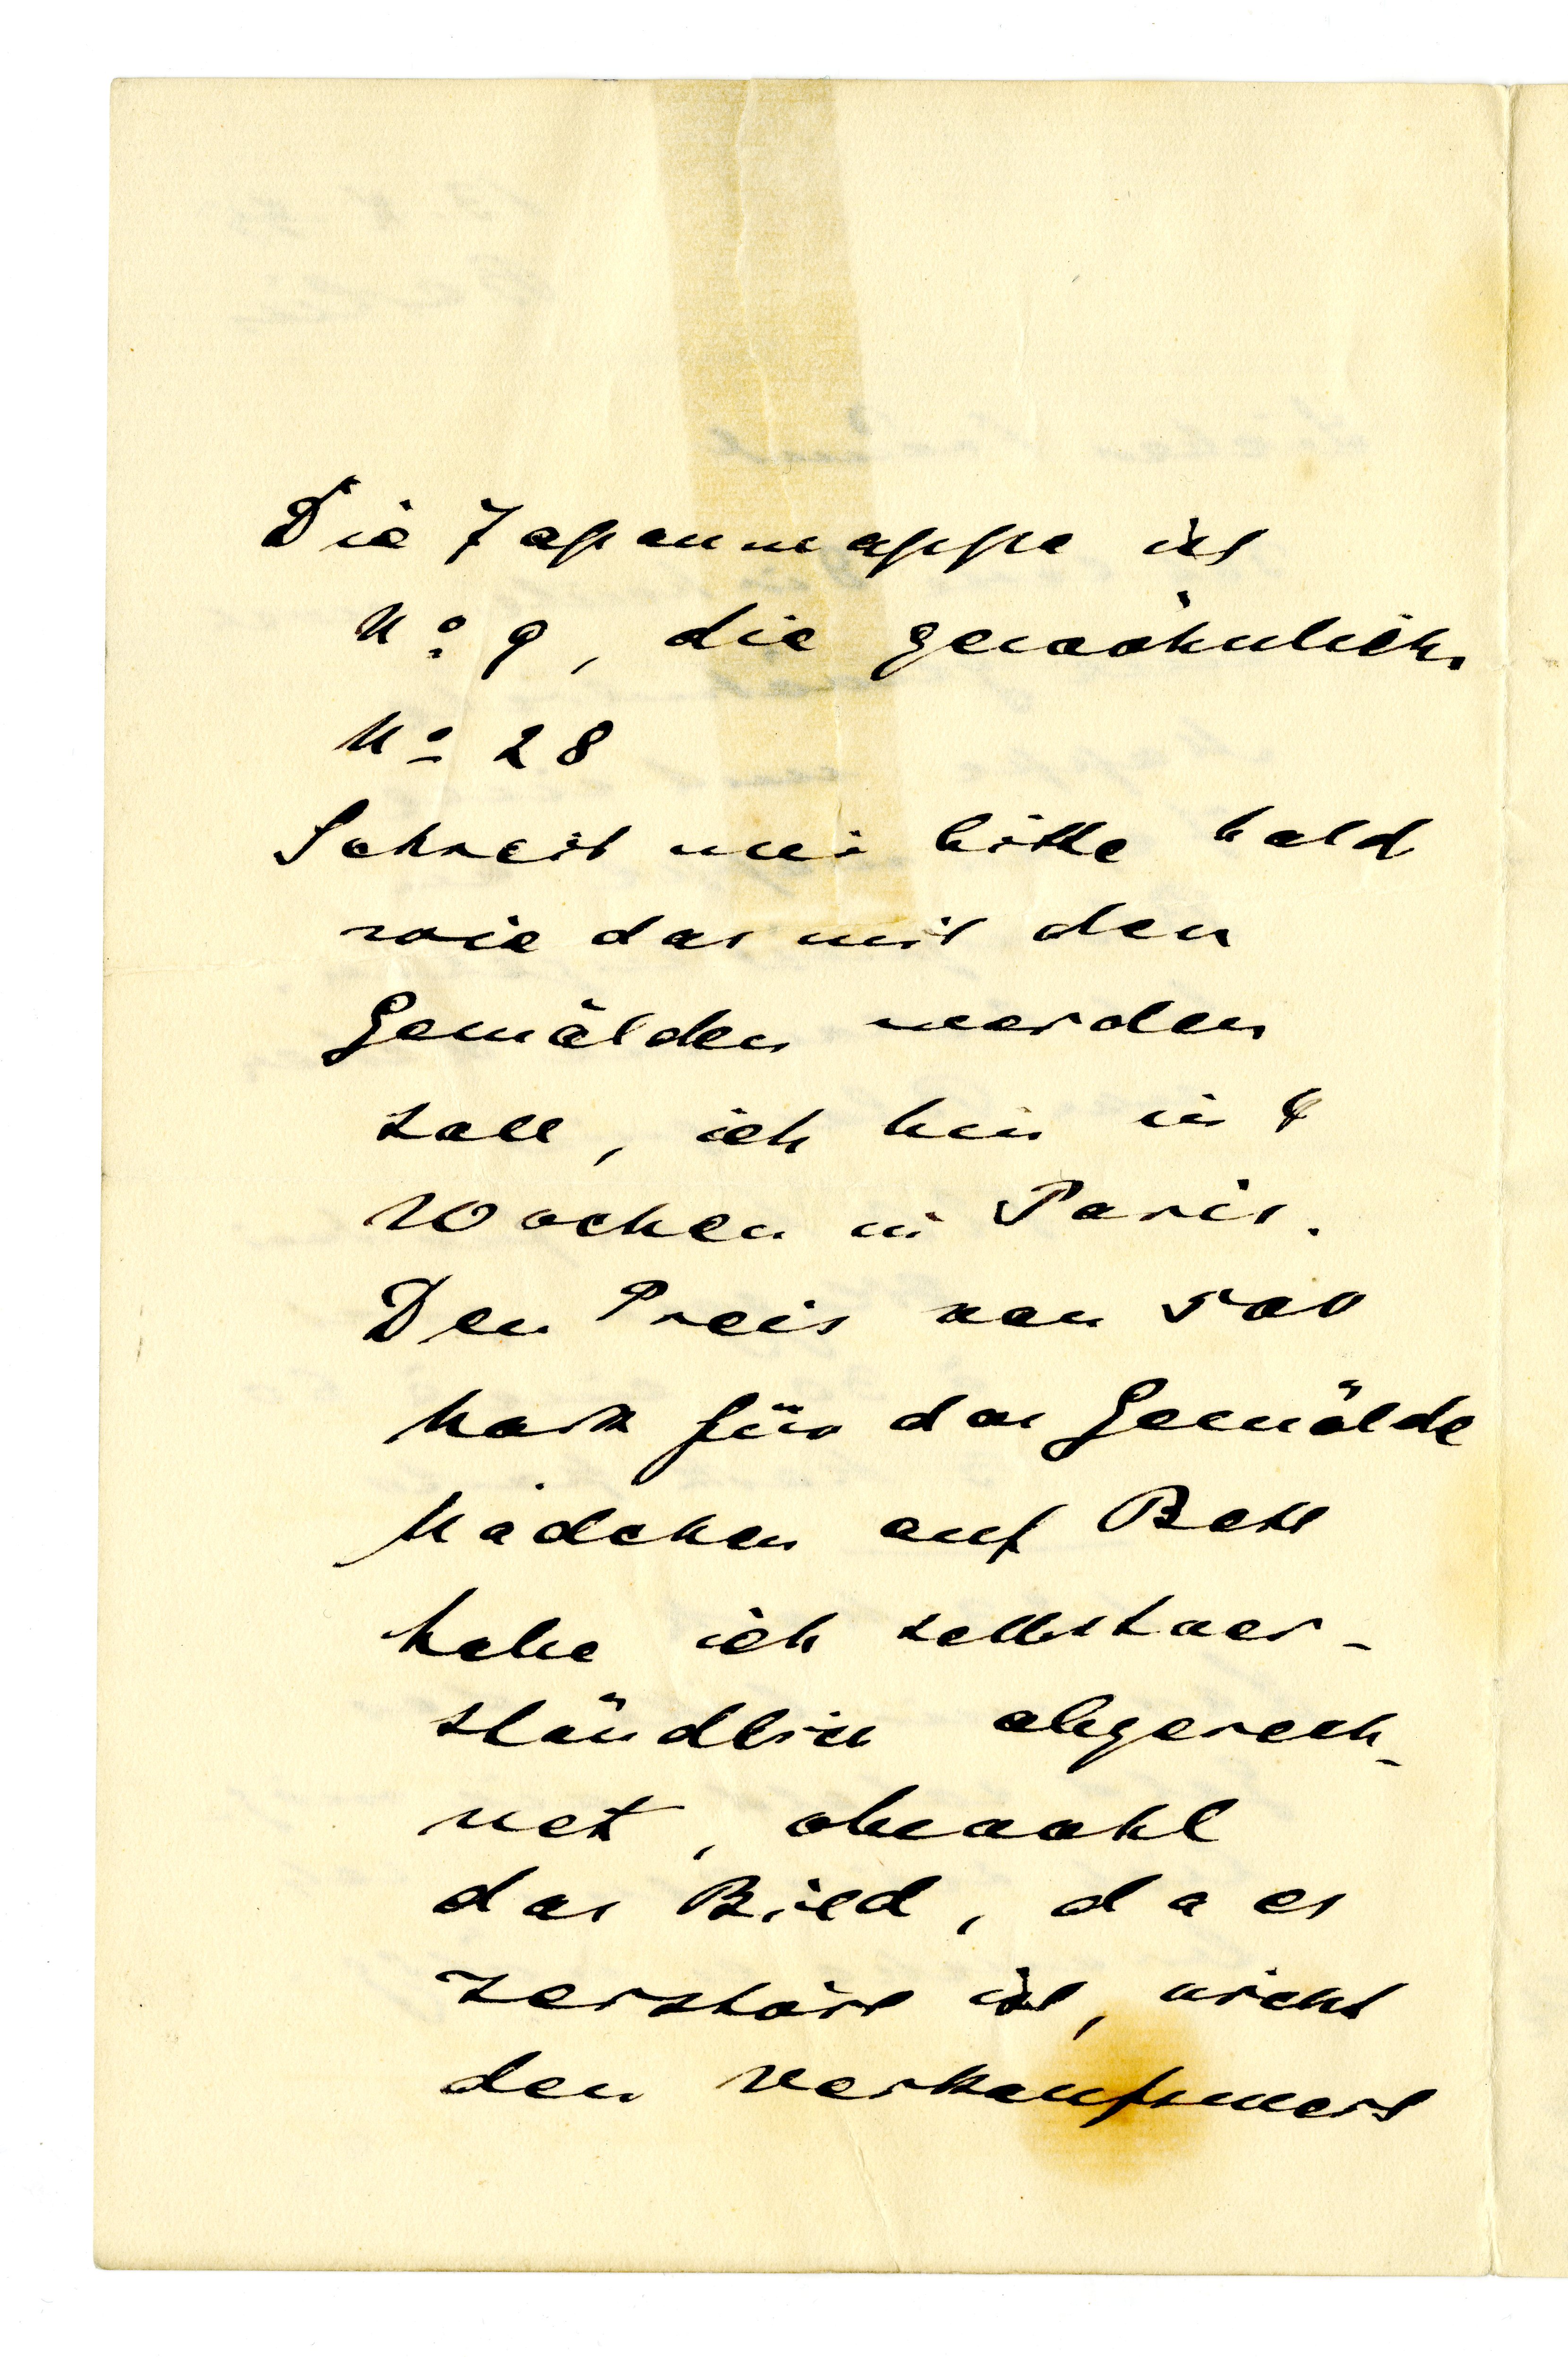 Die Japanmappe ist
No 9, die gewöhnlich
No 28
Schreib mir bitte bald
wie das mit den
Gemälden werden
soll, ich bin in 8
Wochen in Paris.
Den Preis von 500
Mark für das Gemälde
Mädchen auf Bett
habe ich selbstver-
ständlich abgerech-
net, obwohl
das Bild, da es
zerstört ist, nicht
den Verkaufswert